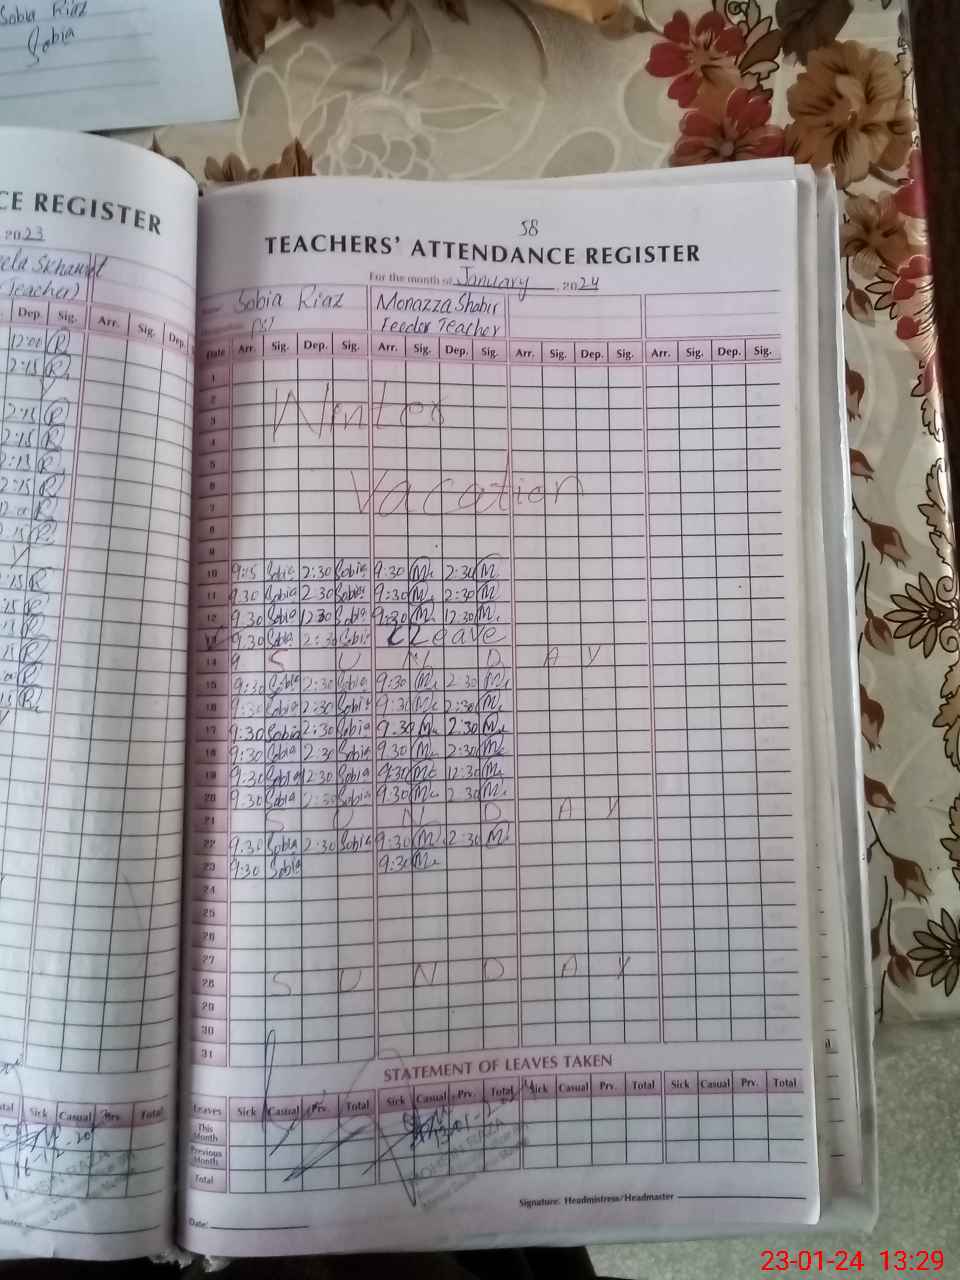 Sobia Riaz
Sobia
CE REGISTER
2023
Teacher)
Dep. Sig. Arr. Sig. Dep.
12:00 R
2:15 R
2:15 R
2:15 R
2:15 R
2:15 R
58
TEACHERS' ATTENDANCE REGISTER
For the month of January, 2024
Sobia Riaz Monazza Shabir
PST Feeder Teacher
Date Arr. Sig. Dep. Sig. Arr. Sig. Dep. Sig. Arr. Sig. Dep. Sig. Arr. Sig. Dep. Sig.
1
2 Winter
3
4
5
6 Vacation
7
8
9
10 9:15 Sobia 2:30 Sobia 9:30 M. 2:30 M.
11 9.30 Sobia 2.30 Sobia 9:30 M. 2:30 M.
12 9.30 Sobia 12:30 Sobia 9:30 M. 12:30 M.
9.30 Sobia 2:30 Sobia Leave
14 9 S U N D A Y
15 9:30 Sobia 2:30 Sobia 9:30 M. 2:30 M.
16 9:30 Sobia 2:30 Sobia 9:30 M. 2:30 M.
17 9:30 Sobia 2:30 Sobia 9.30 M. 2:30 M.
18 9:30 Sobia 2:30 Sobia 9.30 M. 2:30 M.
19 9:30 Sobia 12:30 Sobia 9:30 M. 12:30 M.
20 9.30 Sobia 2:30 Sobia 9:30 M. 2 30 M.
21 S U N D A Y
22 9.30 Sobia 2:30 Sobia 9:30 M. 2:30 M.
23 9:30 Sobia 9:30 M.
24
25
26
27
28 S U N D A Y
29
30
31
STATEMENT OF LEAVES TAKEN
Leaves Sick Casual Prv. Total Sick Casual Prv. Total Sick Casual Prv. Total Sick Casual Prv. Total
This Month
Previous Month
Total
Sick Casual Prv. Total
Signature: Headmistress/Headmaster
Date:
23-01-24 13:29